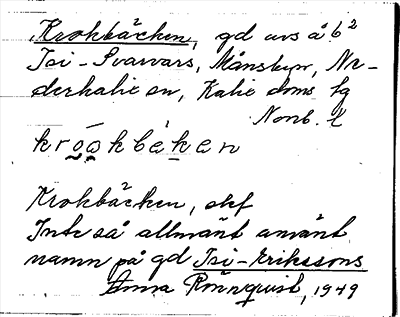 Krokbäcken, gd avs å 6²
Isi-Svarvars, Månsbyn, Ne-
derkalix sn, Kalix doms fg
Norrb. l
kroakbeken
Krokbäcken, ekf
Inte så allmänt använt
namn på gd Isi-Erikssons
Anna Rönnqvist, 1949